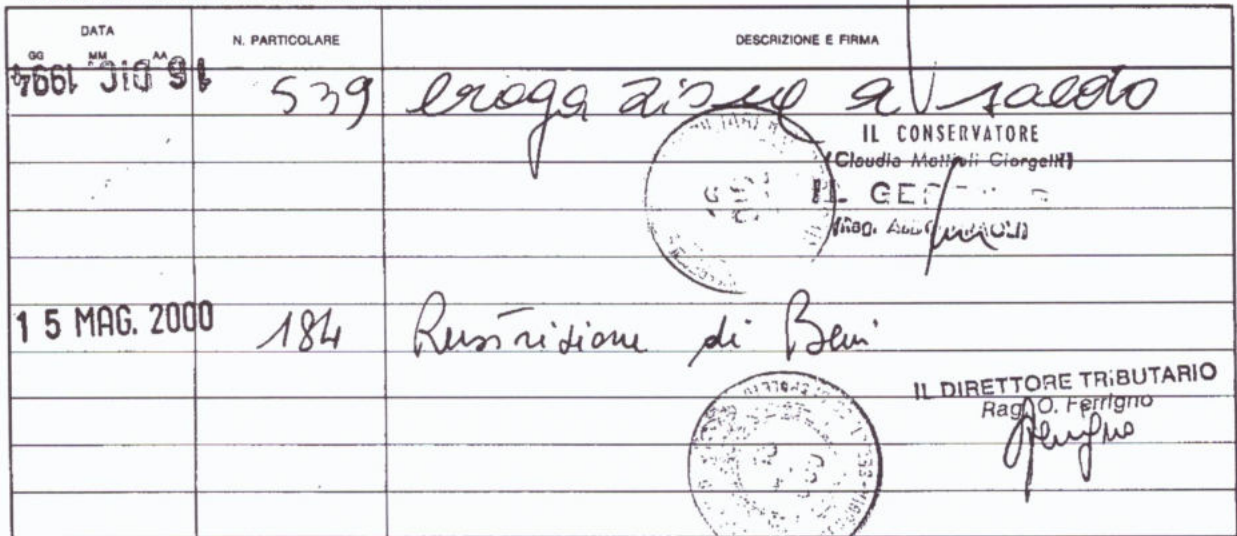 DATA N. PARTICOLARE DESCRIZIONE E FIRMA
GG MM AA
16 DIC 1994 539 erogazione a saldo
IL CONSERVATORE
(Claudia Mattioli Giorgetti)
IL
(Rag.
15 MAG. 2000 184 Restrizione di Beni
IL DIRETTORE TRIBUTARIO
Rag. O. Ferrigno